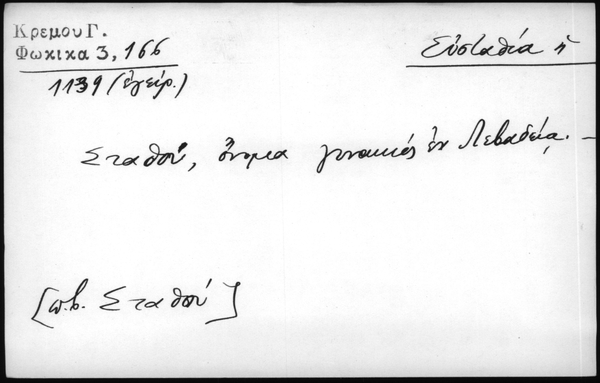 Κρεμου Γ.
Φωκικα 3, 166
1139 (ἐγείρ.)
Εὐσταθία ἡ
Σταθού, ὄνομα γυναικός ἐν Λεβαδείᾳ. –
[π.β. Σταθού]